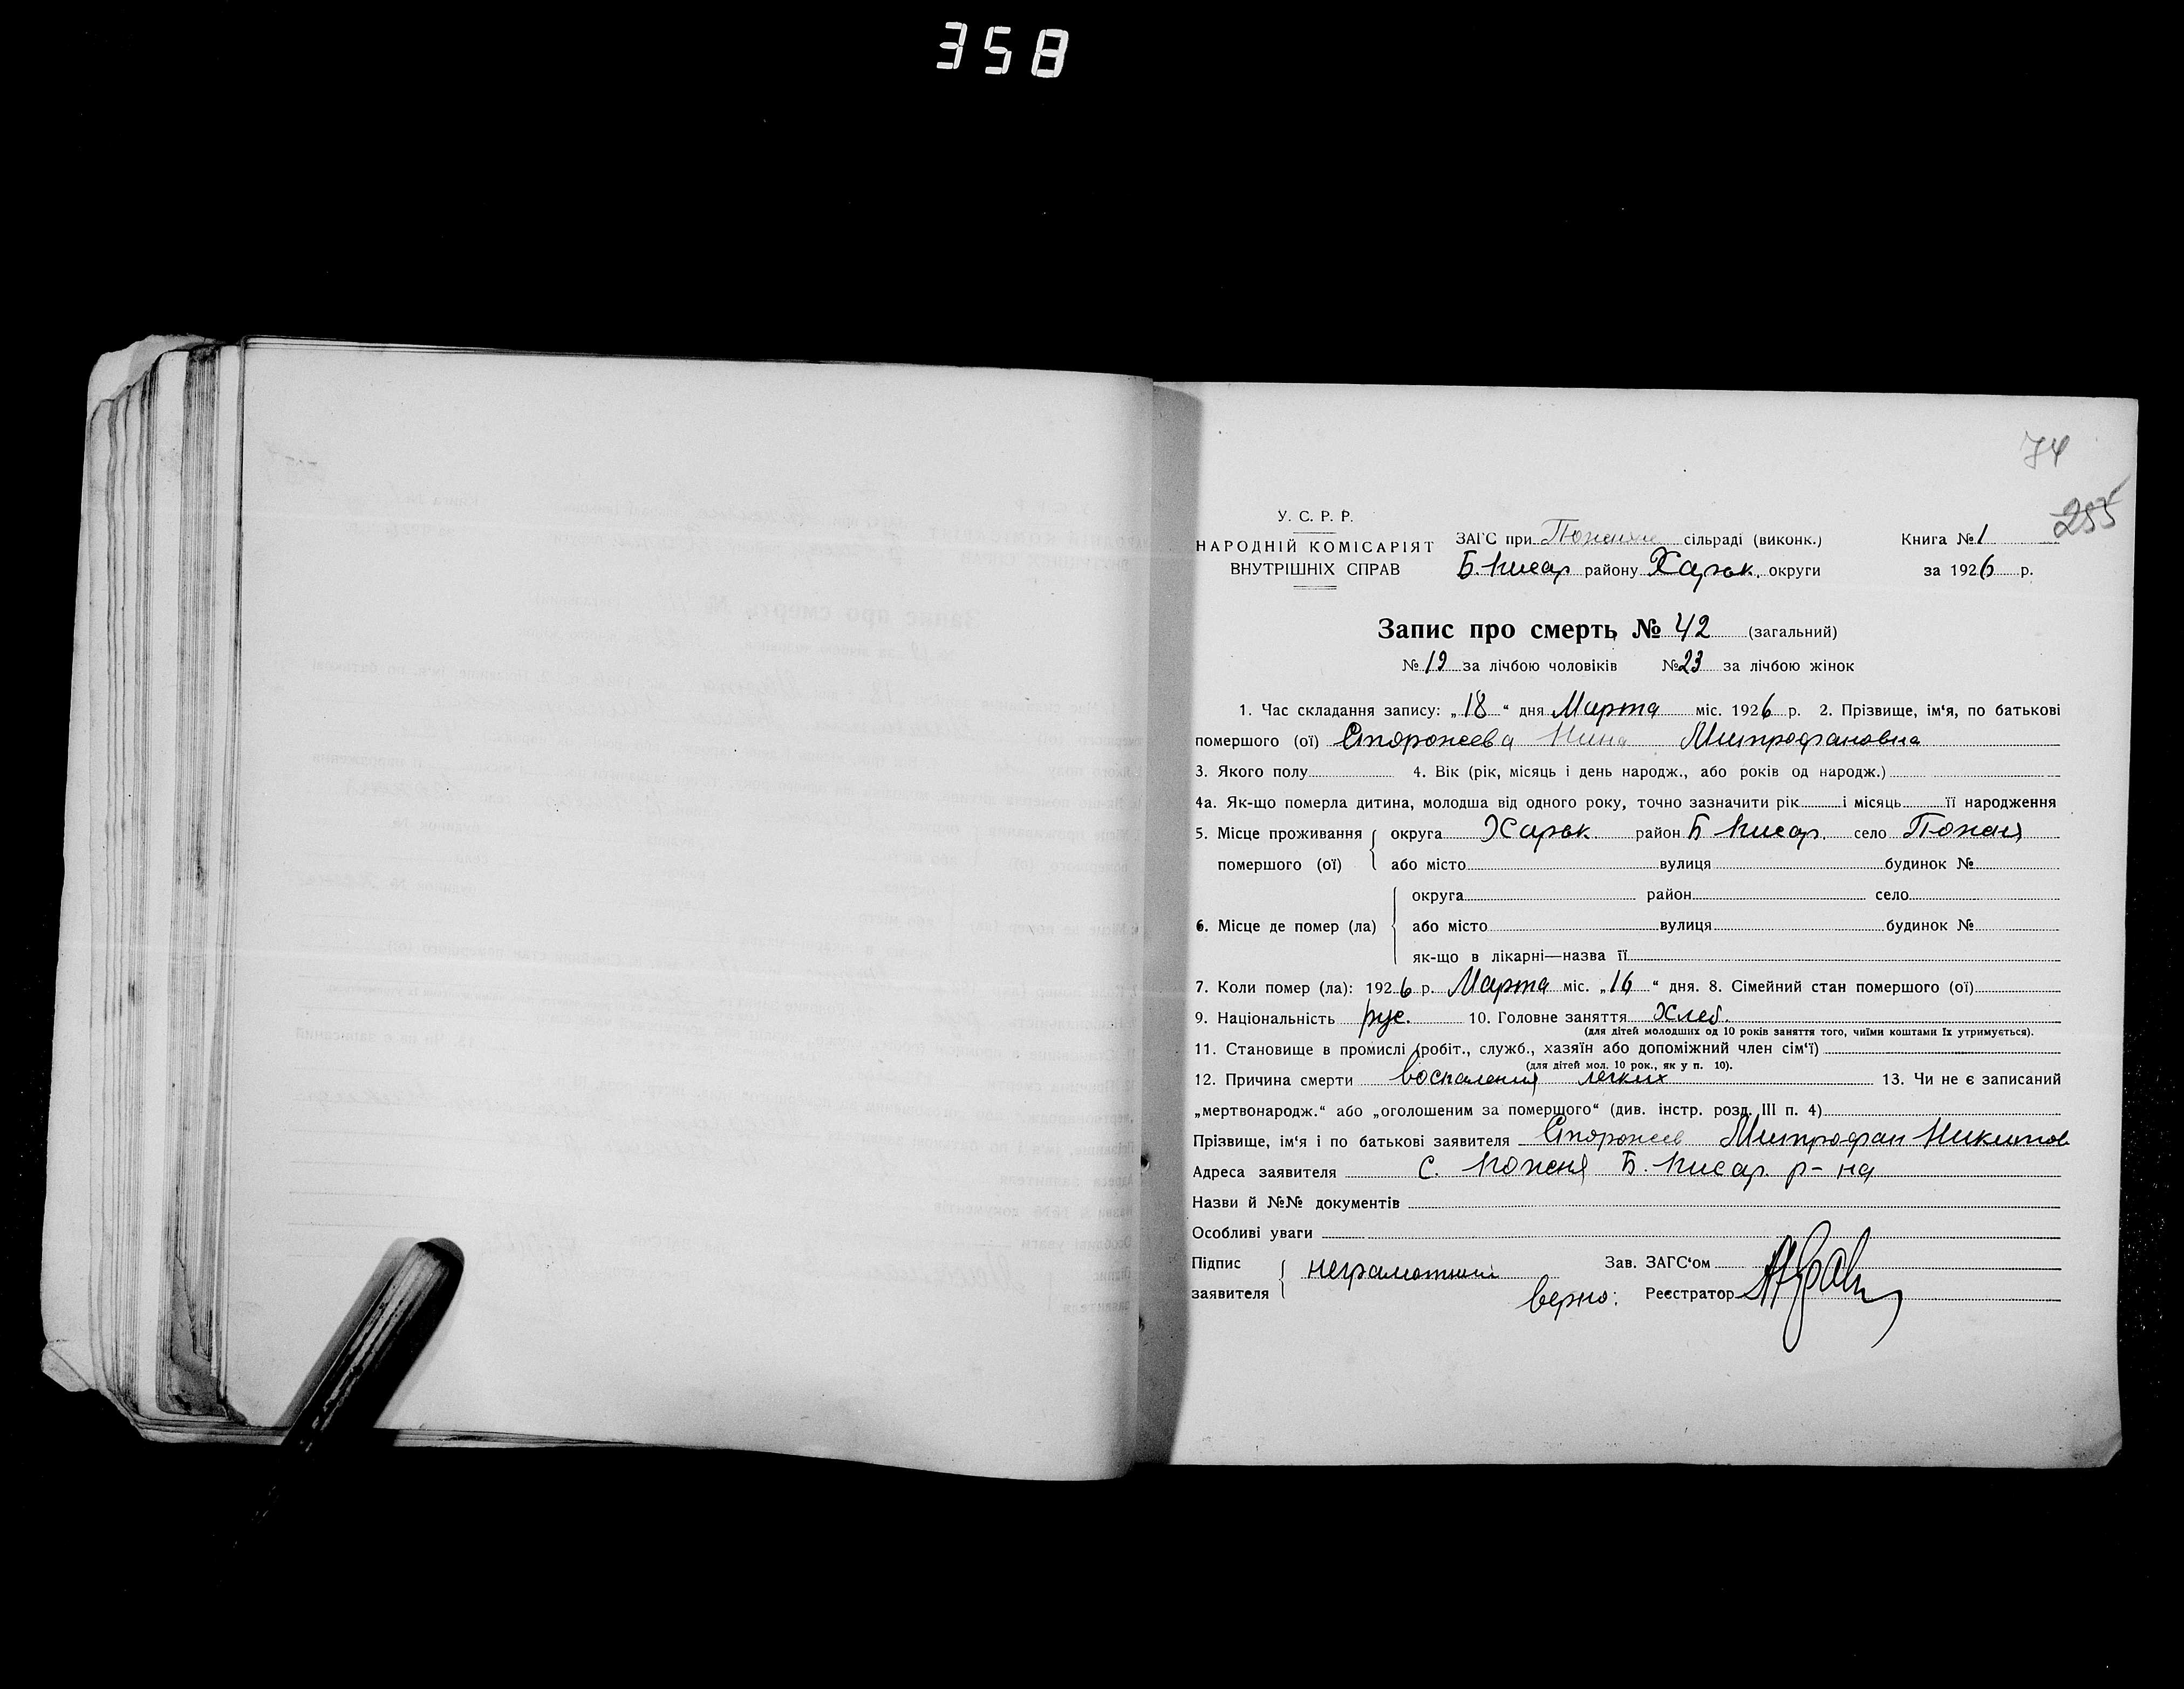 358
74
255
У. С. Р. Р.
НАРОДНІЙ КОМІСАРІЯТ
ВНУТРІШНІХ СПРАВ
ЗАГС при сільраді (виконк.)
Б. Писар району Харьк. округи
Книга № 1
за 1926 р.
Запис про смерть № 42 (загальний)
№ 19 за лічбою чоловіків № 23 за лічбою жінок
1. Час складання запису: „18“ дня Марта міс. 1926 р. 2. Прізвище, ім‘я, по батькові
помершого (ої) Сторожева Нина Митрофановна
3. Якого полу 4. Вік (рік, місяць і день народж., або років од народж.)
4а. Як-що померла дитина, молодша від одного року, точно зазначити рік і місяць її народження
5. Місце проживання помершого (ої) { округа Харьк район Б Писар. село
або місто вулиця будинок №
6. Місце де помер (ла) { округа район село
або місто вулиця будинок №
як-що в лікарні—назва її
7. Коли помер (ла): 1926 р. Марта міс. „16“ дня. 8. Сімейний стан помершого (ої)
9. Національність рус. 10. Головне заняття Хлеб.
(для дітей молодших од 10 років заняття того, чиїми коштами їх утримується).
11. Становище в промислі (робіт., служб., хазяїн або допоміжний член сім‘ї)
(для дітей мол. 10 рок., як у п. 10).
12. Причина смерти воспаления легких 13. Чи не є записаний
„мертвонародж.“ або „оголошеним за помершого“ (див. інстр. розд. III п. 4)
Прізвище, ім‘я і по батькові заявителя Сторожев Митрофан Никитов
Адреса заявителя с. Б. Писар. р-на
Назви й №№ документів
Особливі уваги
Підпис заявителя { неграмотный
Зав. ЗАГС‘ом
верно: Реєстратор